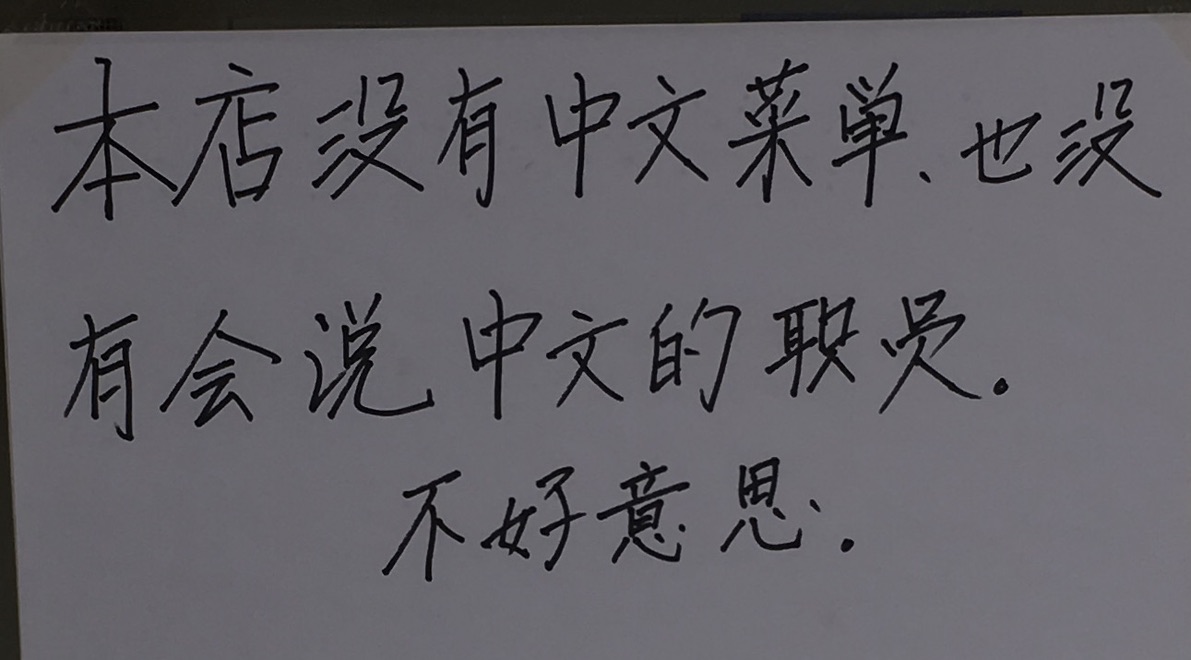 本店没有中文菜単、也没
有会说中文的职员.
不好意思.